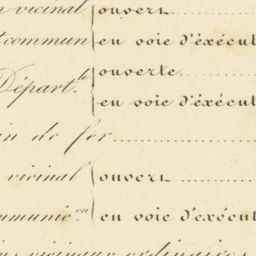 vicinal { ouvert
commun { en voie d'exécut
Départ.ᵗˡ { ouverte
en voie d'exécut
de fer
vicinal { ouvert
en voie d'exécut
vicinaux ordinaires